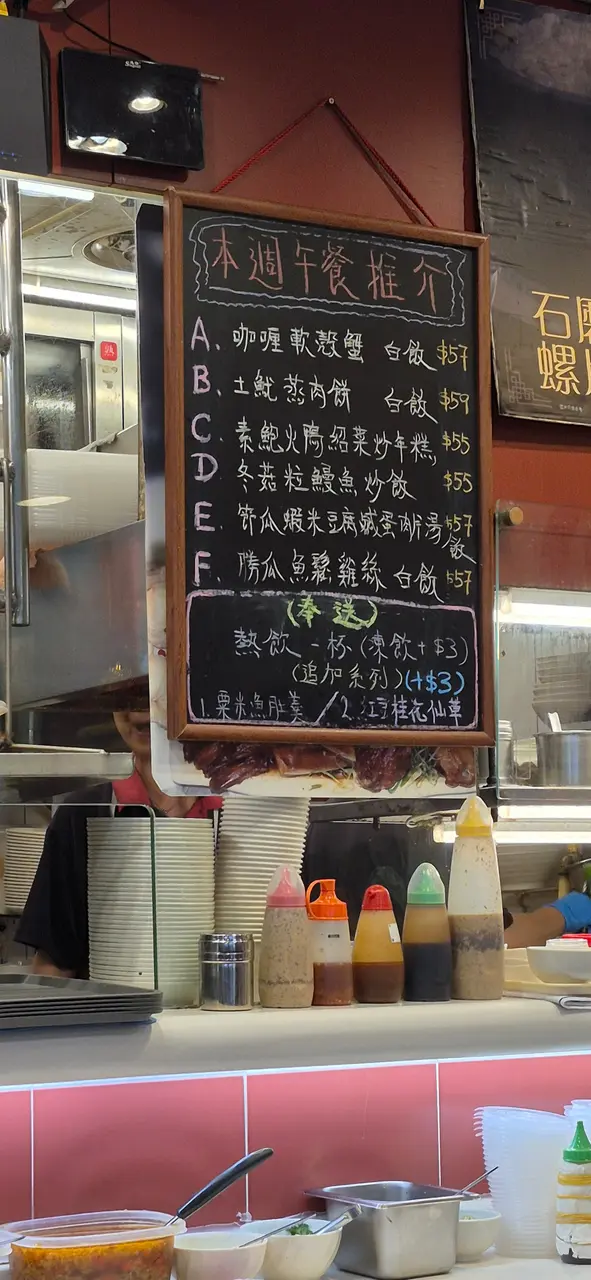 本週午餐推介
A. 咖喱軟殼蟹 白飯 $57
B. 土魷蒸肉餅 白飯 $59
C. 素鮑火鴨絲菜炒年糕 $55
D 冬菇粒鰻魚炒飯 $55
E. 節瓜蝦米豆腐鹹蛋肉片湯飯 $57
F. 勝瓜魚鬆雞絲 白飯 $57
(奉送)
熱飲一杯(凍飲+$3)
(追加系列)(+$3)
1. 粟米魚肚羹 / 2. 紅豆桂花仙草
石
螺
熟